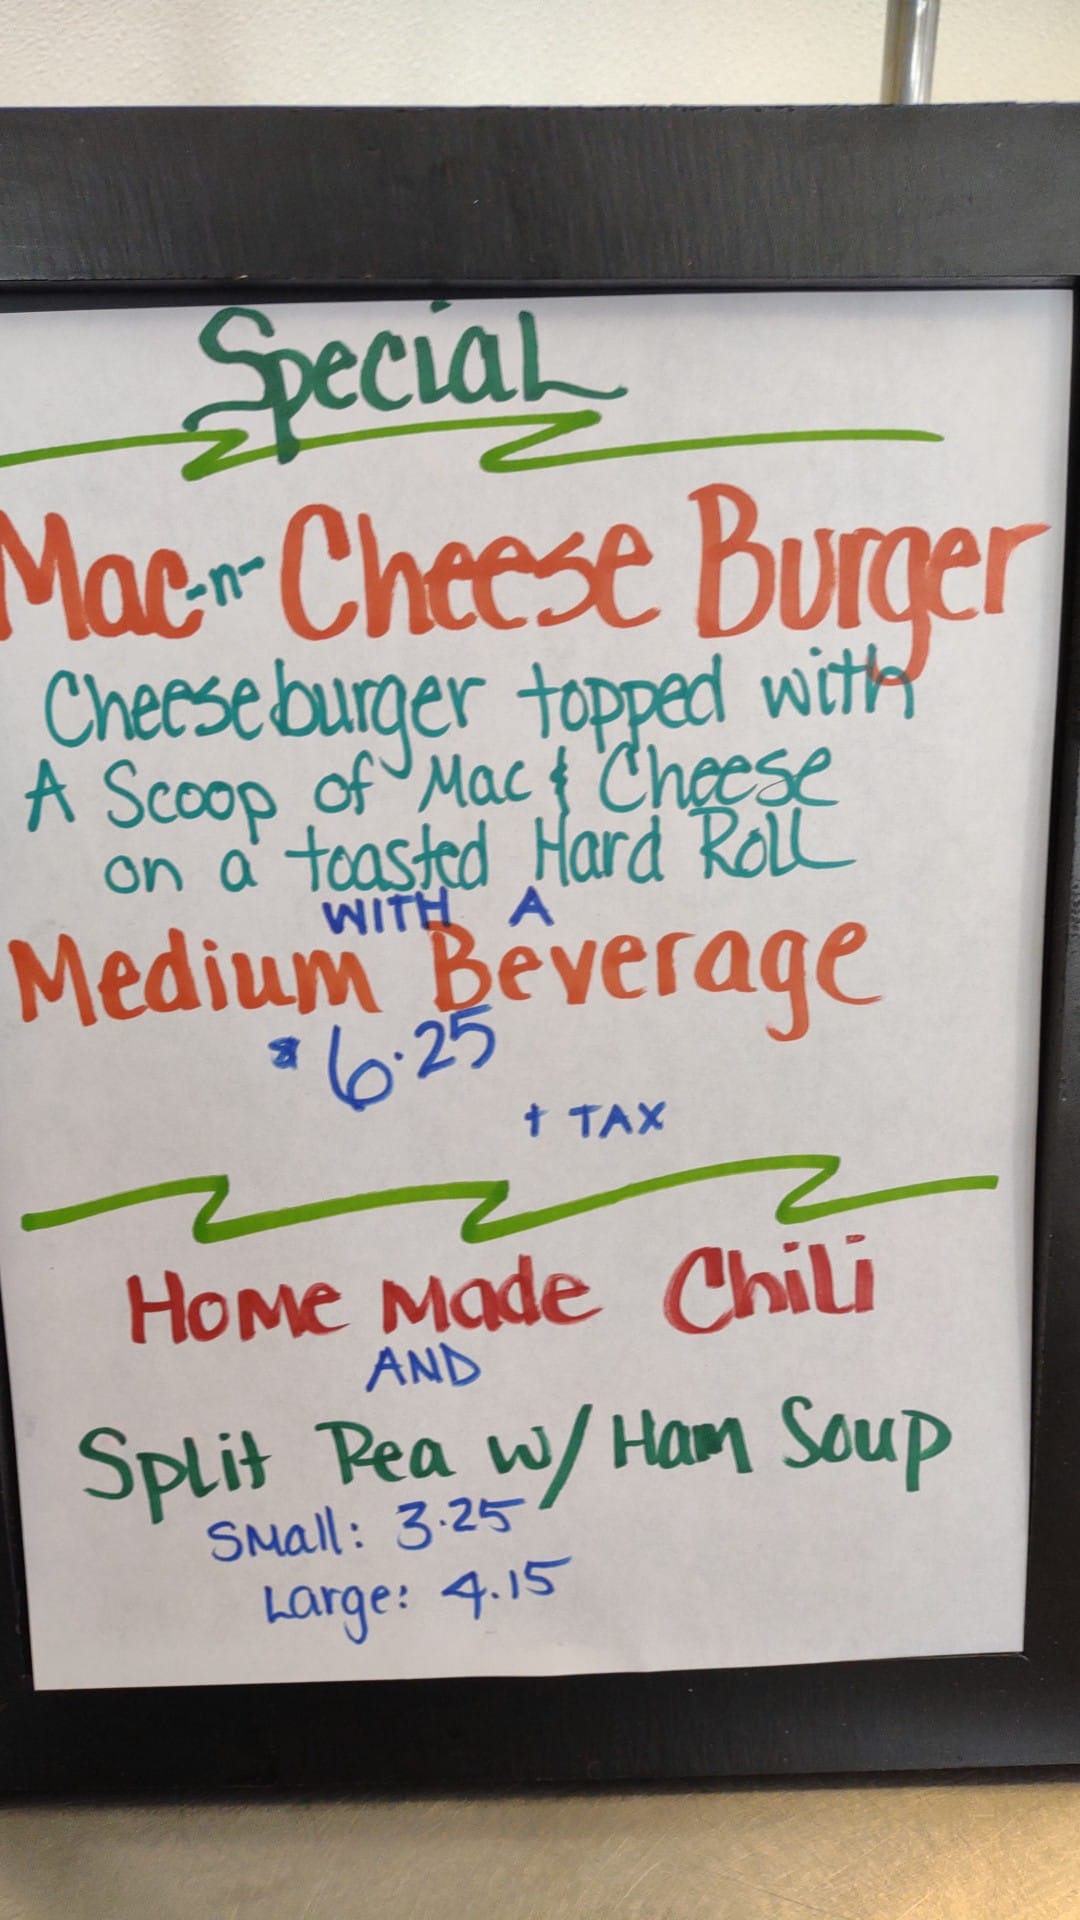 Special
Mac-n-Cheese Burger
Cheeseburger topped with
A Scoop of Mac & Cheese
on a toasted Hard Roll
WITH A
Medium Beverage
$6.25
+ TAX
Home Made Chili
AND
Split Pea w/ Ham Soup
Small: 3.25
Large: 4.15